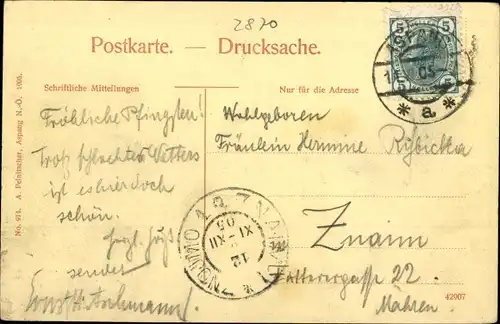 2870
Postkarte. — Drucksache.
Schriftliche Mitteilungen
Nur für die Adresse
Fröhliche Pfingsten!
Trotz schlechten Wetters
ist es hier doch
schön.
herzl. Gruß
sendet
Wohlgeboren
Fräulein Hermine Rybička
Znaim
22.
Mähren.
No. 914. A. Peinitscher, Aspang N.-Ö. 1905.
42907
5 5
ASPANG
05
* a *
ZNAIM
ZNOJMO
12
XI-XII
05